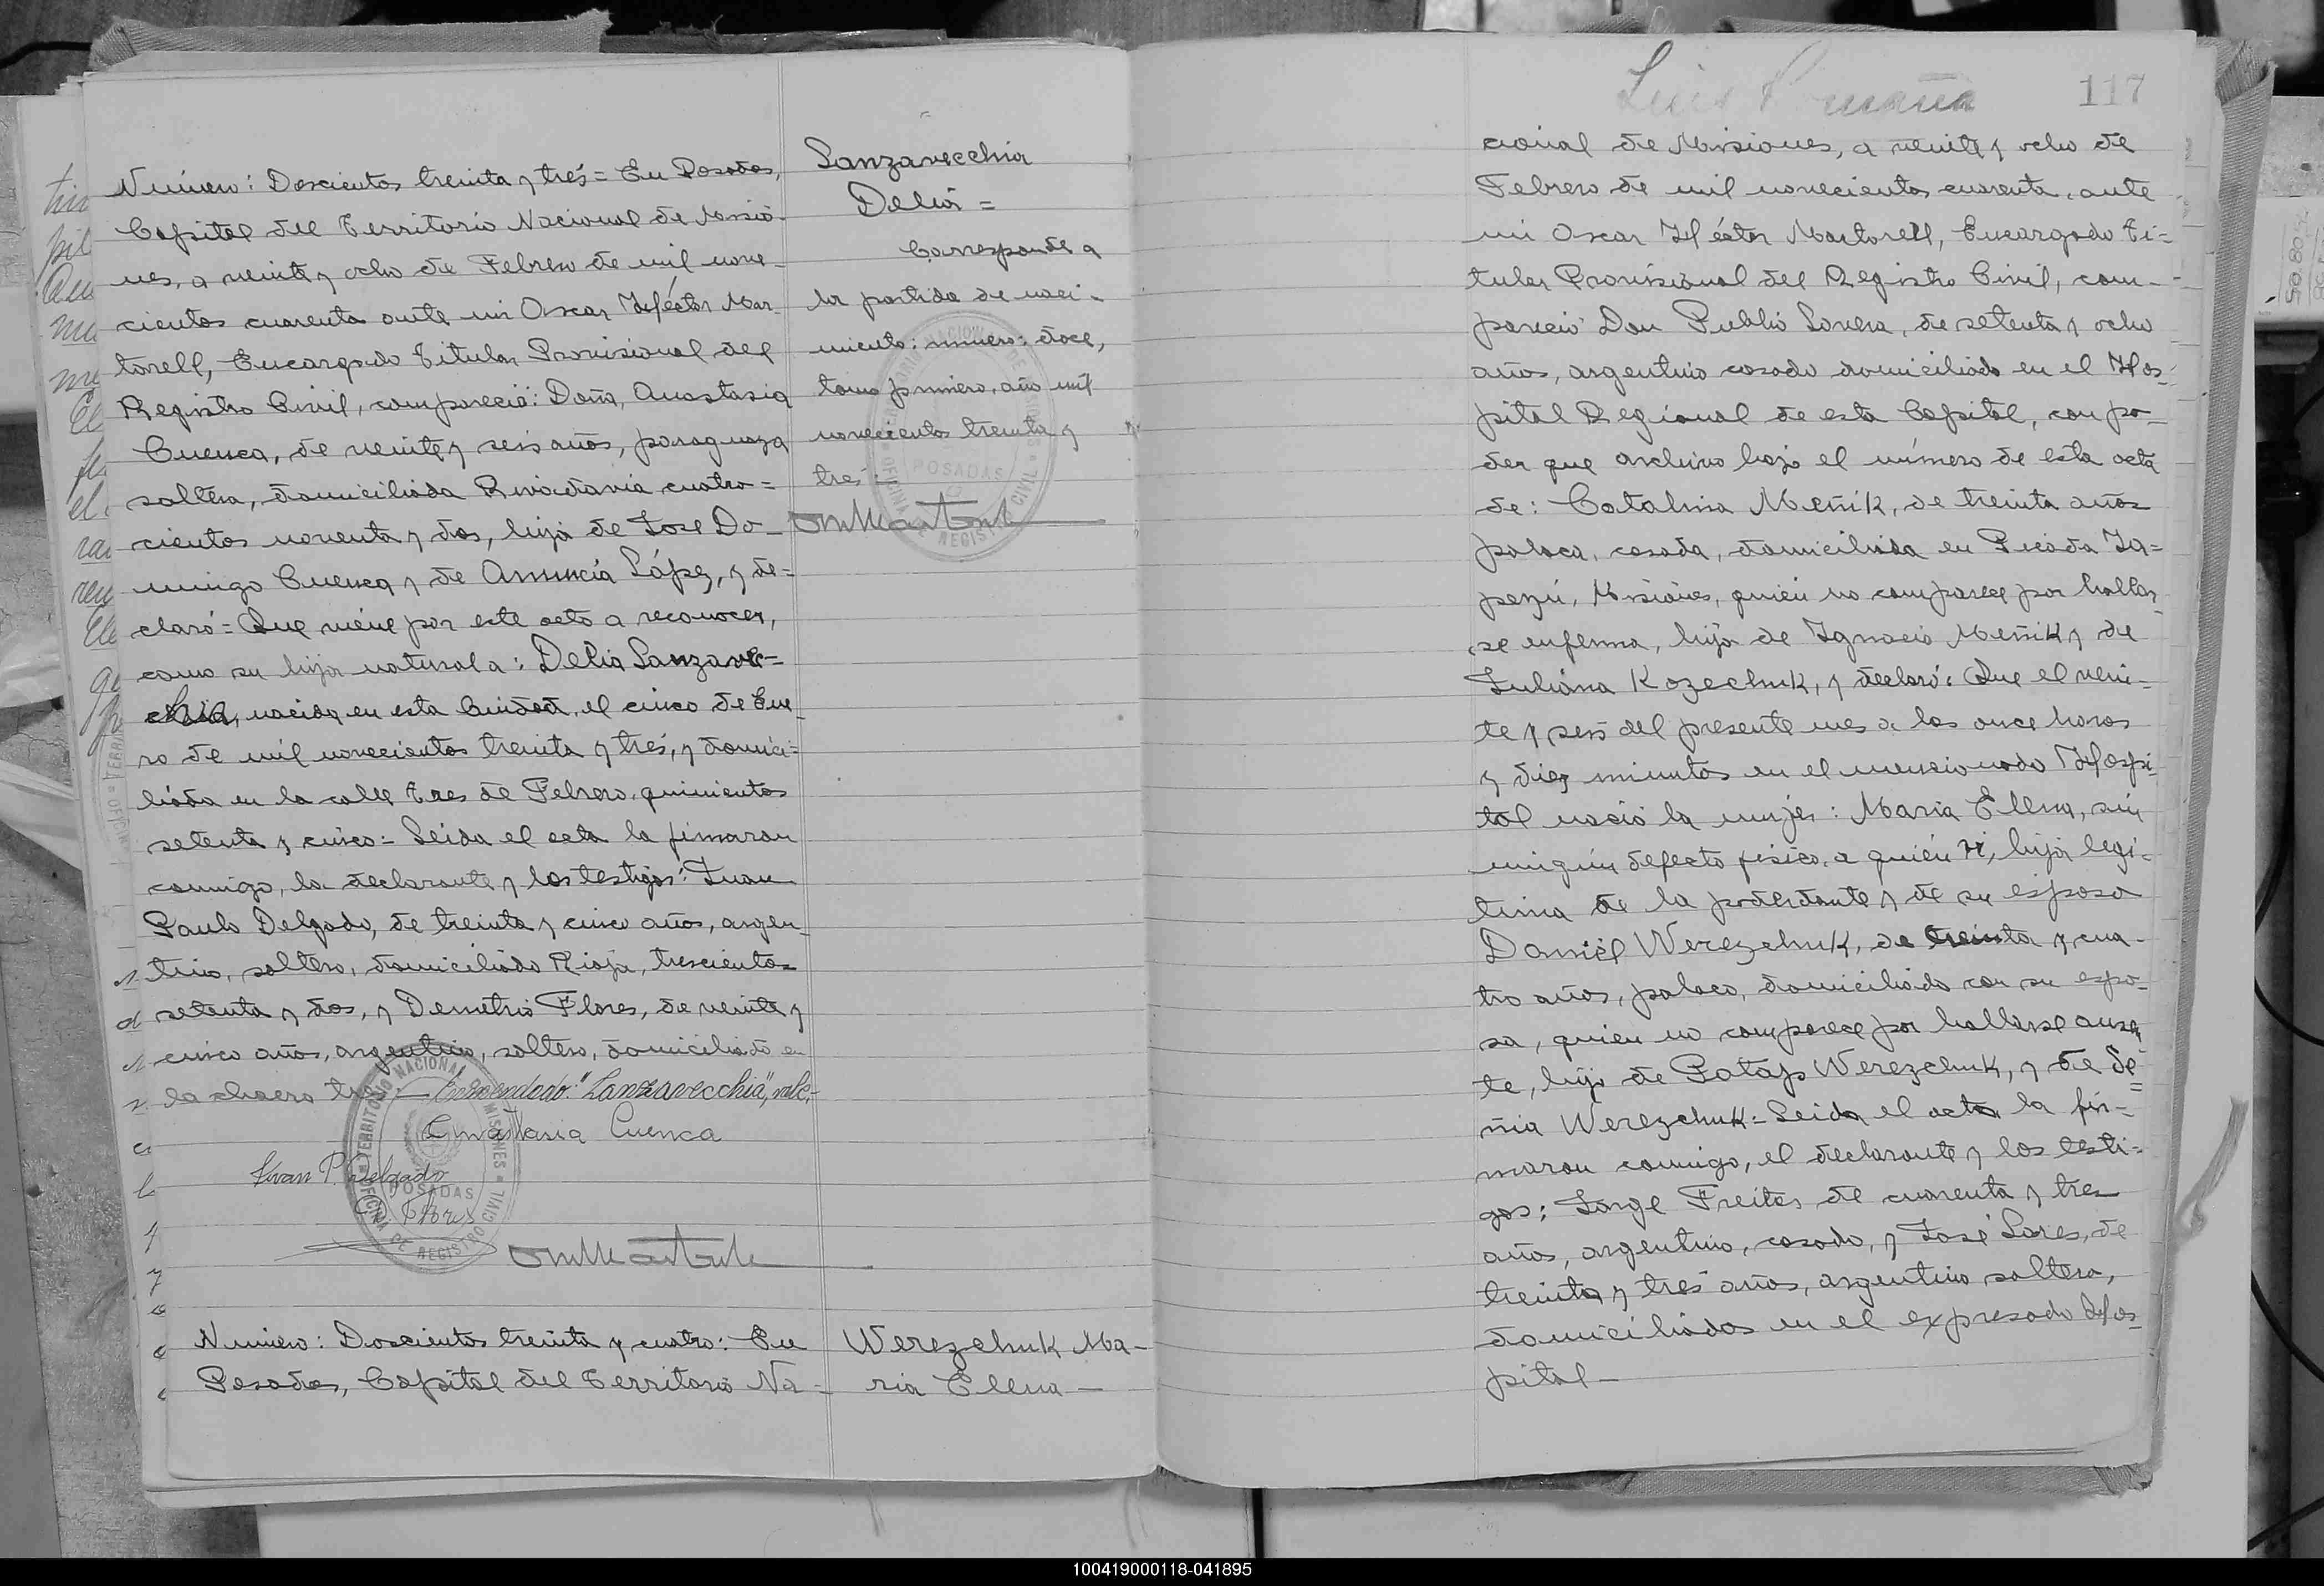 Número: Doscientos treinta y trés = En Posadas,
Capital del Territorio Nacional de Misio-
nes, a veinte y ocho de Febrero de mil nove-
cientos cuarenta ante mi Oscar Héctor Mar-
torell, Encargado Titular Provisional del
Registro Civil, compareció: Doña, Anastasia
Cuenca, de veinte y seis años, paraguaya
soltera, domiciliada Rivadavia cuatro=
cientos noventa y dos, hija de José Do-
mingo Cuenca y de Anuncia López, y de=
claró= Que viene por este acto a reconocer,
como su hija natural a: Delia Lanzavec=
chia, nacida en esta Ciudad, el cinco de Ene-
ro de mil novecientos treinta y trés, y domici=
liada en la calle Tres de Febrero, quinientos
setenta y cinco= Leída el acta la firmaron
conmigo, la declarante y los testigos: Juan
Paulo Delgado, de treinta y cinco años, argen-
tino, soltero, domiciliado Rioja, trescientos
setenta y dos, y Demetrio Flores, de veinte y
cinco años, argentino, soltero, domiciliado en
la chacra Enmendado: "Lanzavecchia", vale.-
Anastasia Cuenca
Juan P. Delgado
Flores
TERRITORIO NACIONAL DE MISIONES
POSADAS
OFICINA DE REGISTRO CIVIL
Lanzavecchia
Delia =
Corresponde a
la partida de naci-
miento: número: doce,
tomo primero, año mil
novecientos treinta y
tres.
POSADAS
OFICINA DE REGISTRO CIVIL
Número: Doscientos treinta y cuatro: En
Posadas, Capital del Territorio Na-
Werezchuk Ma-
ria Elena-
Luis
117
cional de Misiones, a veinte y ocho de
Febrero de mil novecientos cuarenta, ante
mi Oscar Héctor Martorell, Encargado Ti=
tular Provisional del Registro Civil, com-
pareció Don Publio Lovera, de setenta y ocho
años, argentino casado domiciliado en el Hos-
pital Regional de esta Capital, con po-
der que archivo bajo el número de esta acta
de: Catalina Meñik, de treinta años
polaca, casada, domiciliada en Picada Ya=
peyú, Misiones, quién no comparece por hallar-
se enferma, hija de Ignacio Meñik y de
Juliána Kozechuk, y declaró: Que el vein-
te y seis del presente mes a las once horas
y diez minutos en el mencionado Hospi-
tal nació la mujer: Maria Elena, sin
ningún defecto físico, a quién ví, hija legi-
tima de la poderdante y de su esposo
Daniél Werezchuk, de treinta y cua-
tro años, polaco, domiciliado con su espo-
sa, quien no comparece por hallarse ausen
te, hijo de Potap Werezchuk, y de Se=
nia Werezchuk= Leida el acta la fir=
maron conmigo, el declarante y los testi=
gos: Jorge Freites de cuarenta y tres
años, argentino, casado, y José Lares, de
treinta y trés años, argentino soltero,
domiciliados en el expresado Hos-
pital-
100419000118-041895